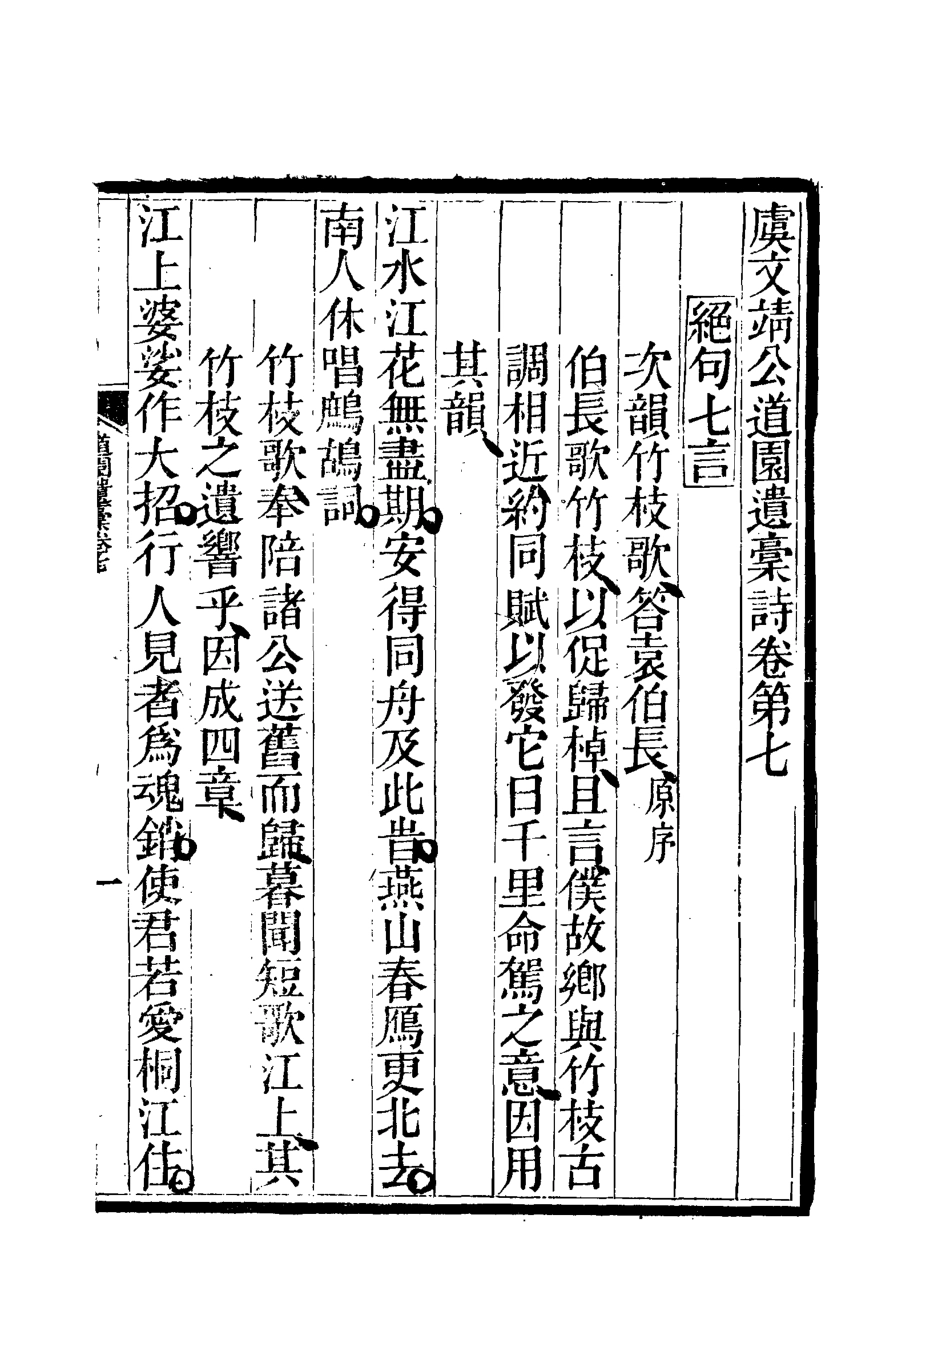 虞文靖公道園遺稾詩卷第七
絕句七言
次韻竹枝歌、答袁伯長、原序
伯長歌竹枝、以促歸棹、且言、僕故鄉與竹枝古
調相近、約同賦以發它日千里命駕之意、因用
其韻、
江水江花無盡期。安得同舟及此時。燕山春鴈更北去。
南人休唱鷓鴣詞。
竹枝歌奉陪諸公送舊而歸、暮聞短歌江上、其
竹枝之遺響乎、因成四章、
江上婆娑作大招。行人見者爲魂銷。使君若愛桐江住。
道園遺稾卷七
一